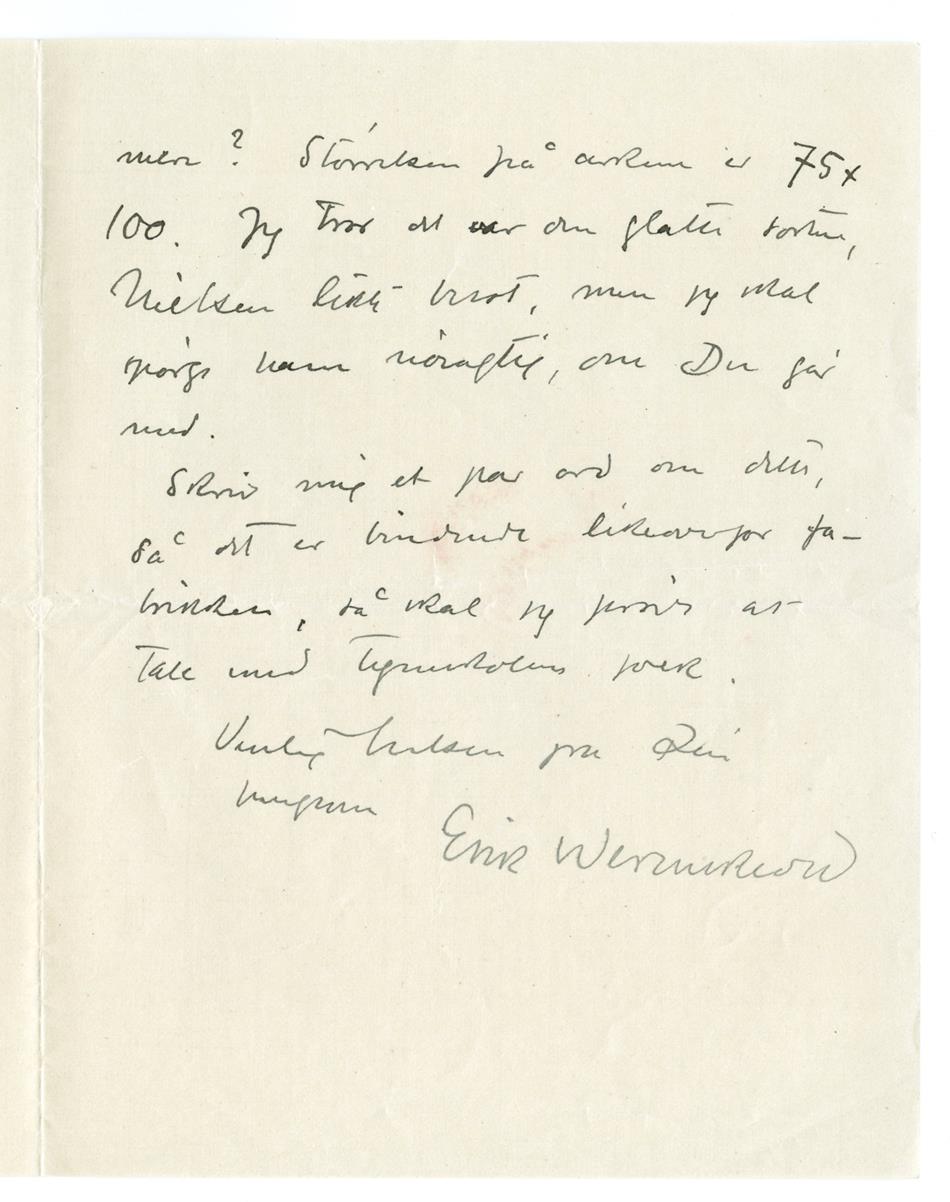 mere? Størrelsen på arkene er 75x
100. Jeg tror det var den glatte sorten,
Nielsen likte best, men jeg skal
spørge ham nöiagtig, om Du går
med.
Skriv mig et par ord om dette,
så det er bindende likeoverfor fa-
brikken, så skal jeg prøve at
tale med Tegneskolens folk.
Venlig hilsen fra Din
hengivne
Erik Werenskiold